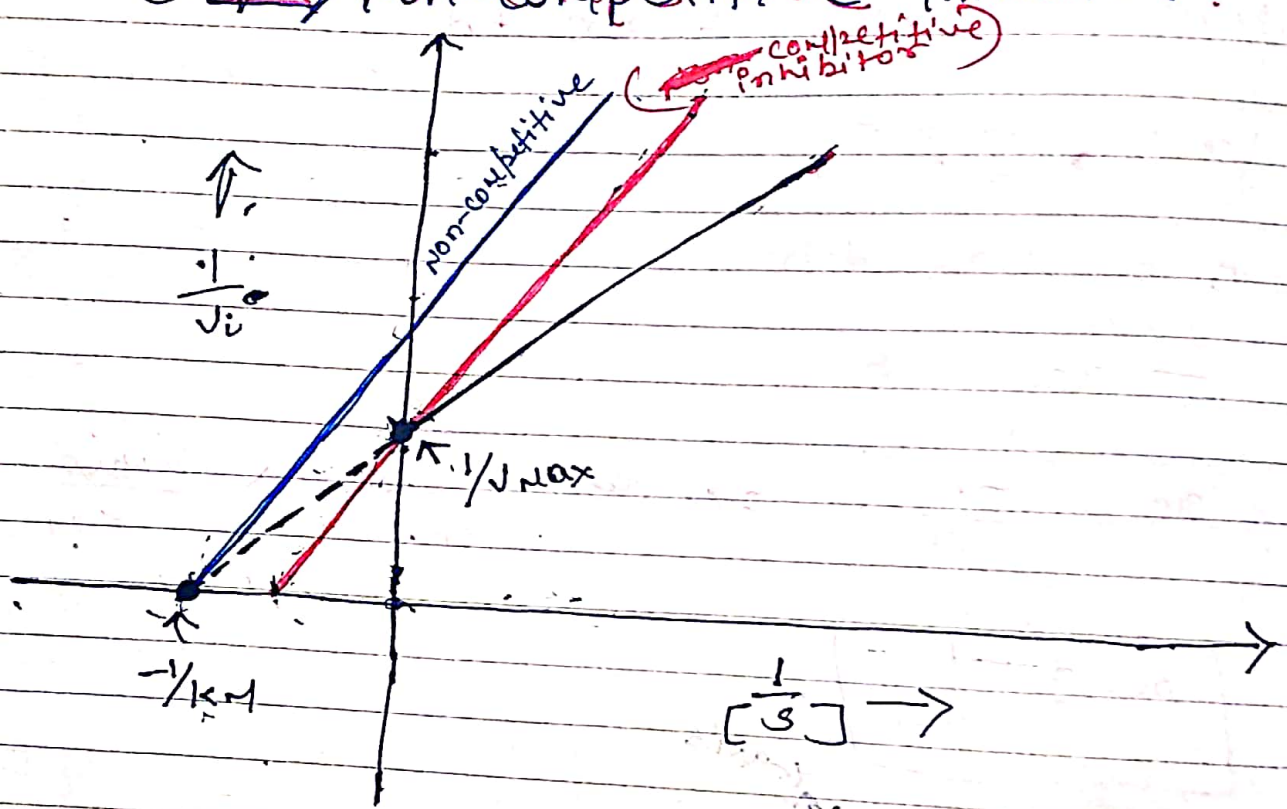 competitive
inhibitor
Non-competitive
1
Vi
1/VMax
-1/KM
1
[S]